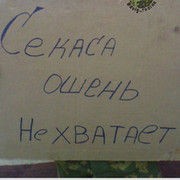 Секаса
ошень
Не хватает